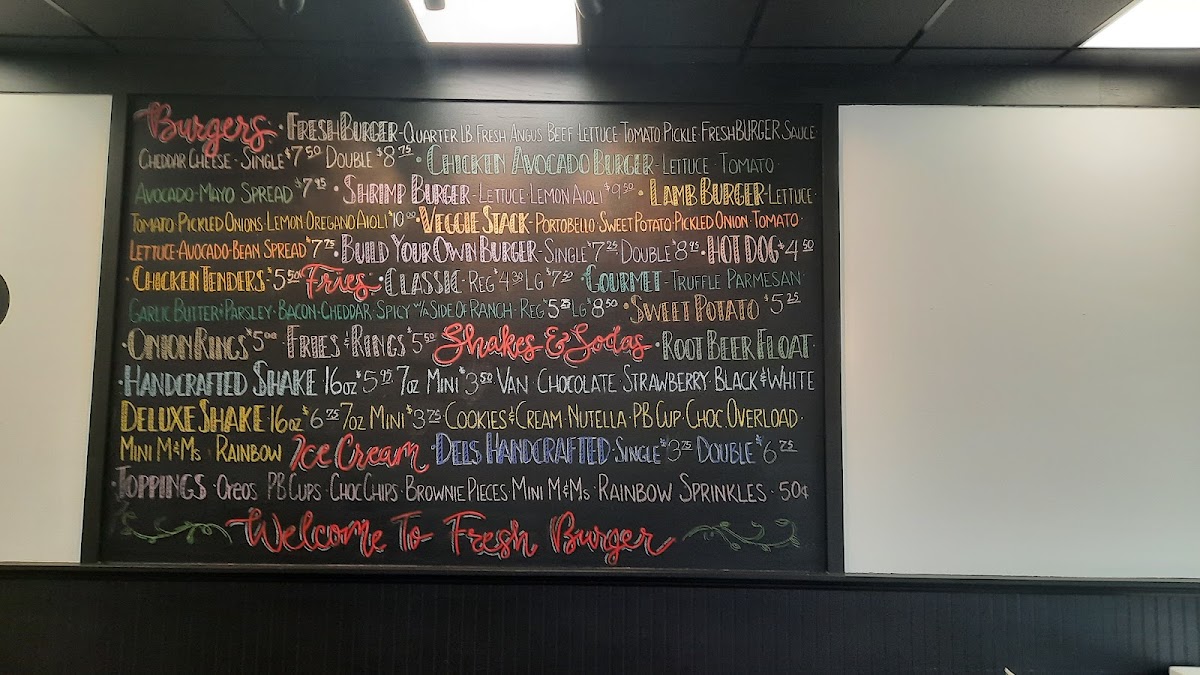 Burgers · FRESH BURGER - QUARTER LB. FRESH ANGUS BEEF LETTUCE TOMATO PICKLE · FRESHBURGER SAUCE ·
CHEDDAR CHEESE · SINGLE $7.50 DOUBLE $8.75 · CHICKEN AVOCADO BURGER - LETTUCE · TOMATO ·
AVOCADO · MAYO SPREAD $7.95 · SHRIMP BURGER - LETTUCE · LEMON AIOLI $9.50 · LAMB BURGER - LETTUCE ·
TOMATO · PICKLED ONIONS · LEMON · OREGANO AIOLI $10.00 · VEGGIE STACK - PORTOBELLO · SWEET POTATO · PICKLED ONION · TOMATO ·
LETTUCE · AVOCADO · BEAN SPREAD $7.75 · BUILD YOUR OWN BURGER - SINGLE $7.25 DOUBLE $8.95 · HOT DOG $4.50
· CHICKEN TENDERS $5.50 Fries · CLASSIC · REG $4.30 LG $7.50 · GOURMET - TRUFFLE PARMESAN ·
GARLIC BUTTER & PARSLEY · BACON · CHEDDAR · SPICY W/A SIDE OF RANCH · REG $5.25 LG $8.50 · SWEET POTATO $5.25
· ONION RINGS $5.00 · FRIES & RINGS $5.50 Shakes & Sodas · ROOT BEER FLOAT ·
· HANDCRAFTED SHAKE 16oz $5.95 7oz MINI $3.50 VAN CHOCOLATE · STRAWBERRY · BLACK & WHITE
DELUXE SHAKE 16oz $6.75 7oz MINI $3.75 · COOKIES & CREAM · NUTELLA · PB CUP · CHOC. OVERLOAD ·
MINI M&Ms · RAINBOW Ice Cream · DELS HANDCRAFTED · SINGLE $3.75 DOUBLE $6.25
· TOPPINGS · OREOS PB CUPS · CHOC CHIPS · BROWNIE PIECES · MINI M&Ms · RAINBOW SPRINKLES · 50¢
Welcome To Fresh Burger